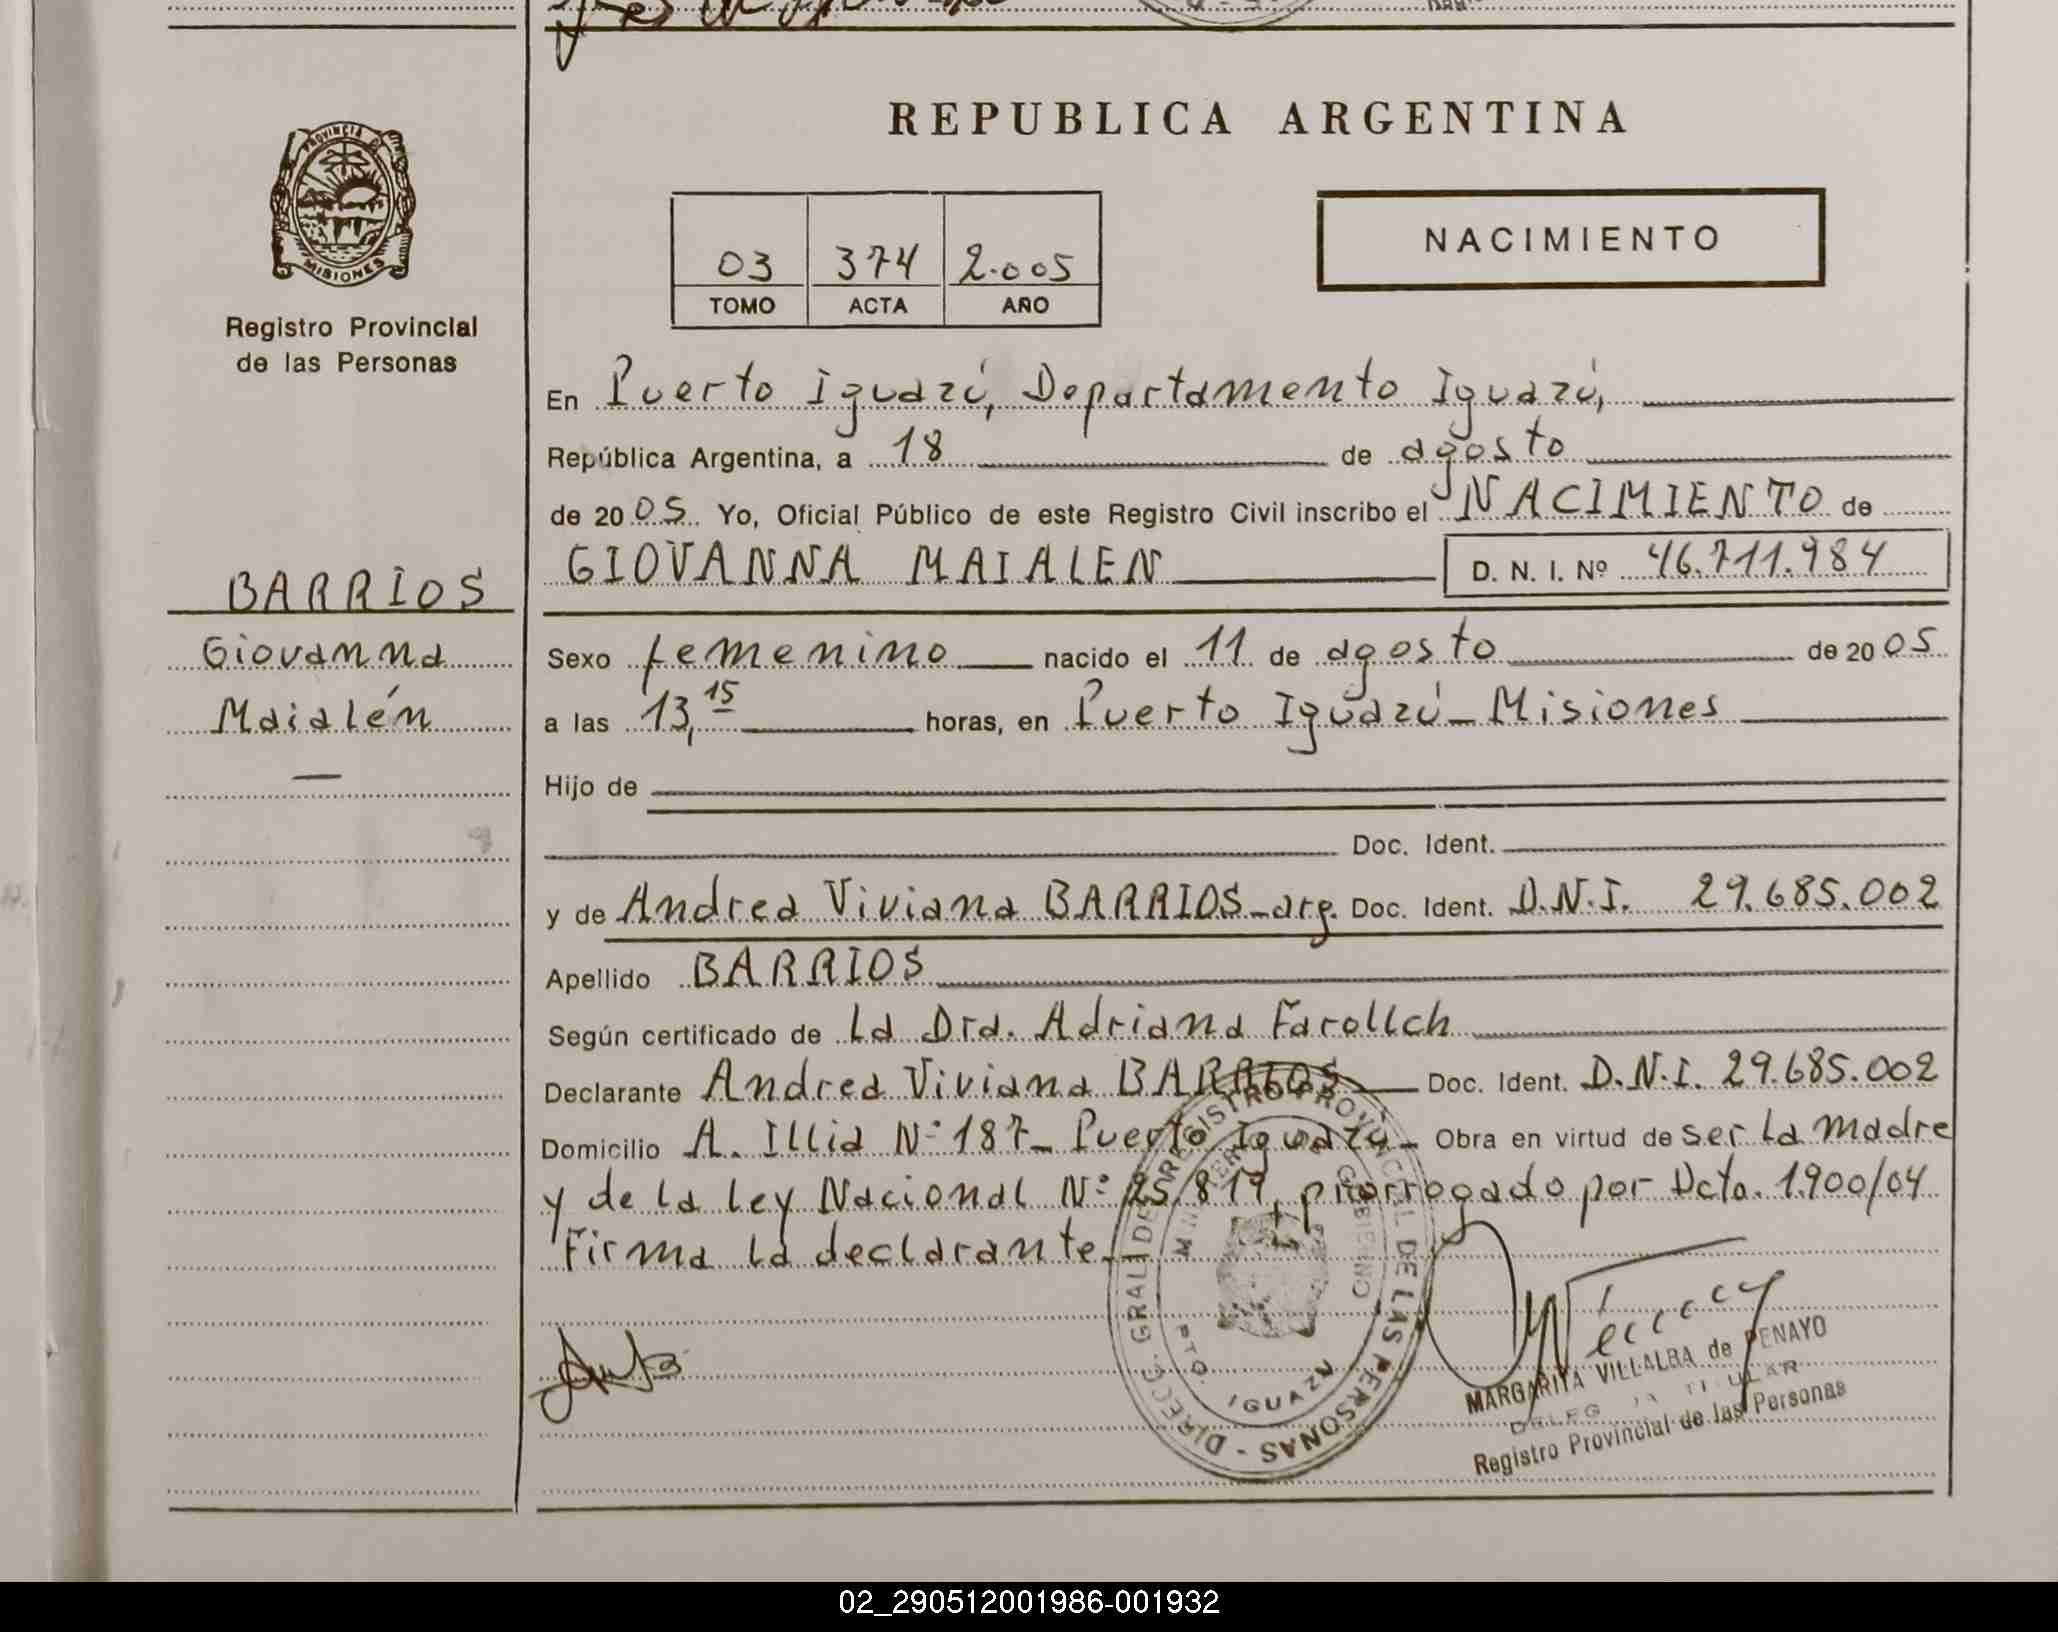 REPUBLICA ARGENTINA
PROVINCIA DE
MISIONES
Registro Provincial
de las Personas
03 374 2.005
TOMO ACTA AÑO
NACIMIENTO
En Puerto Iguazú, Departamento Iguazú,
República Argentina, a 18 de agosto
de 2005. Yo, Oficial Público de este Registro Civil inscribo el NACIMIENTO de
GIOVANNA MAIALEN D. N. I. Nº 46.711.984
BARRIOS
Giovanna
Maialén
Sexo femenino nacido el 11 de agosto de 2005
a las 13,15 horas, en Puerto Iguazú - Misiones
Hijo de
Doc. Ident.
y de Andrea Viviana BARRIOS - arg. Doc. Ident. D.N.I. 29.685.002
Apellido BARRIOS
Según certificado de la Dra. Adriana Farollch
Declarante Andrea Viviana BARRIOS Doc. Ident. D.N.I. 29.685.002
Domicilio A. Illia Nº 187 - Puerto Iguazú - Obra en virtud de ser la madre
y de la ley Nacional Nº 25.819, prorrogado por Dcto. 1.900/04
Firma la declarante.
DIREC. GRAL. DE REGISTRO PROVINCIAL DE LAS PERSONAS -
GOBIERNO
PTO. IGUAZU
MARGARITA VILLALBA de PENAYO
TITULAR
Registro Provincial de las Personas
02_290512001986-001932